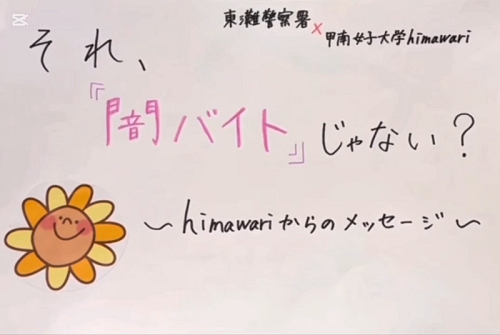 東灘警察署
×甲南女子大学himawari
それ、
『闇バイト』じゃない？
～himawariからのメッセージ～